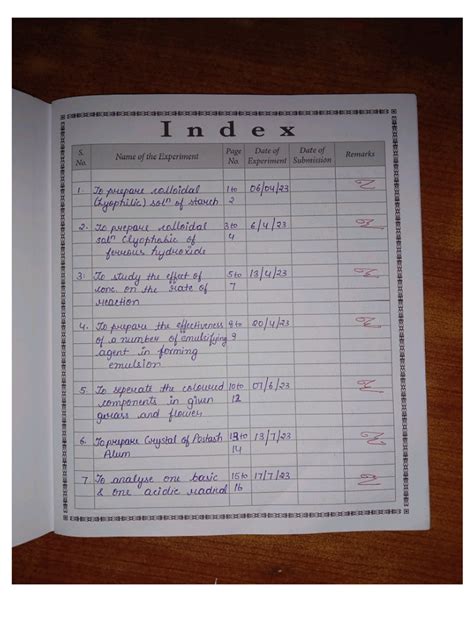 Index
S. No. Name of the Experiment Page No. Date of Experiment Date of Submission Remarks
1. To prepare colloidal 1 to 06/04/23
(Lyophilic) solⁿ of starch 2
2. To prepare colloidal 3 to 6/4/23
solⁿ (lyophobic of 4
ferrous hydroxide
3. To study the effect of 5 to 13/4/23
conc. on the rate of 7
reaction
4. To prepare the effectiveness 8 to 20/4/23
of a number of emulsifying 9
agent in forming
emulsion
5. To seperate the coloured 10 to 07/6/23
components in given 12
grass and flower
6. To prepare Crystal of Postash 13 to 13/7/23
Alum 14
7. To analyse one basic 15 to 17/7/23
& one acidic 16